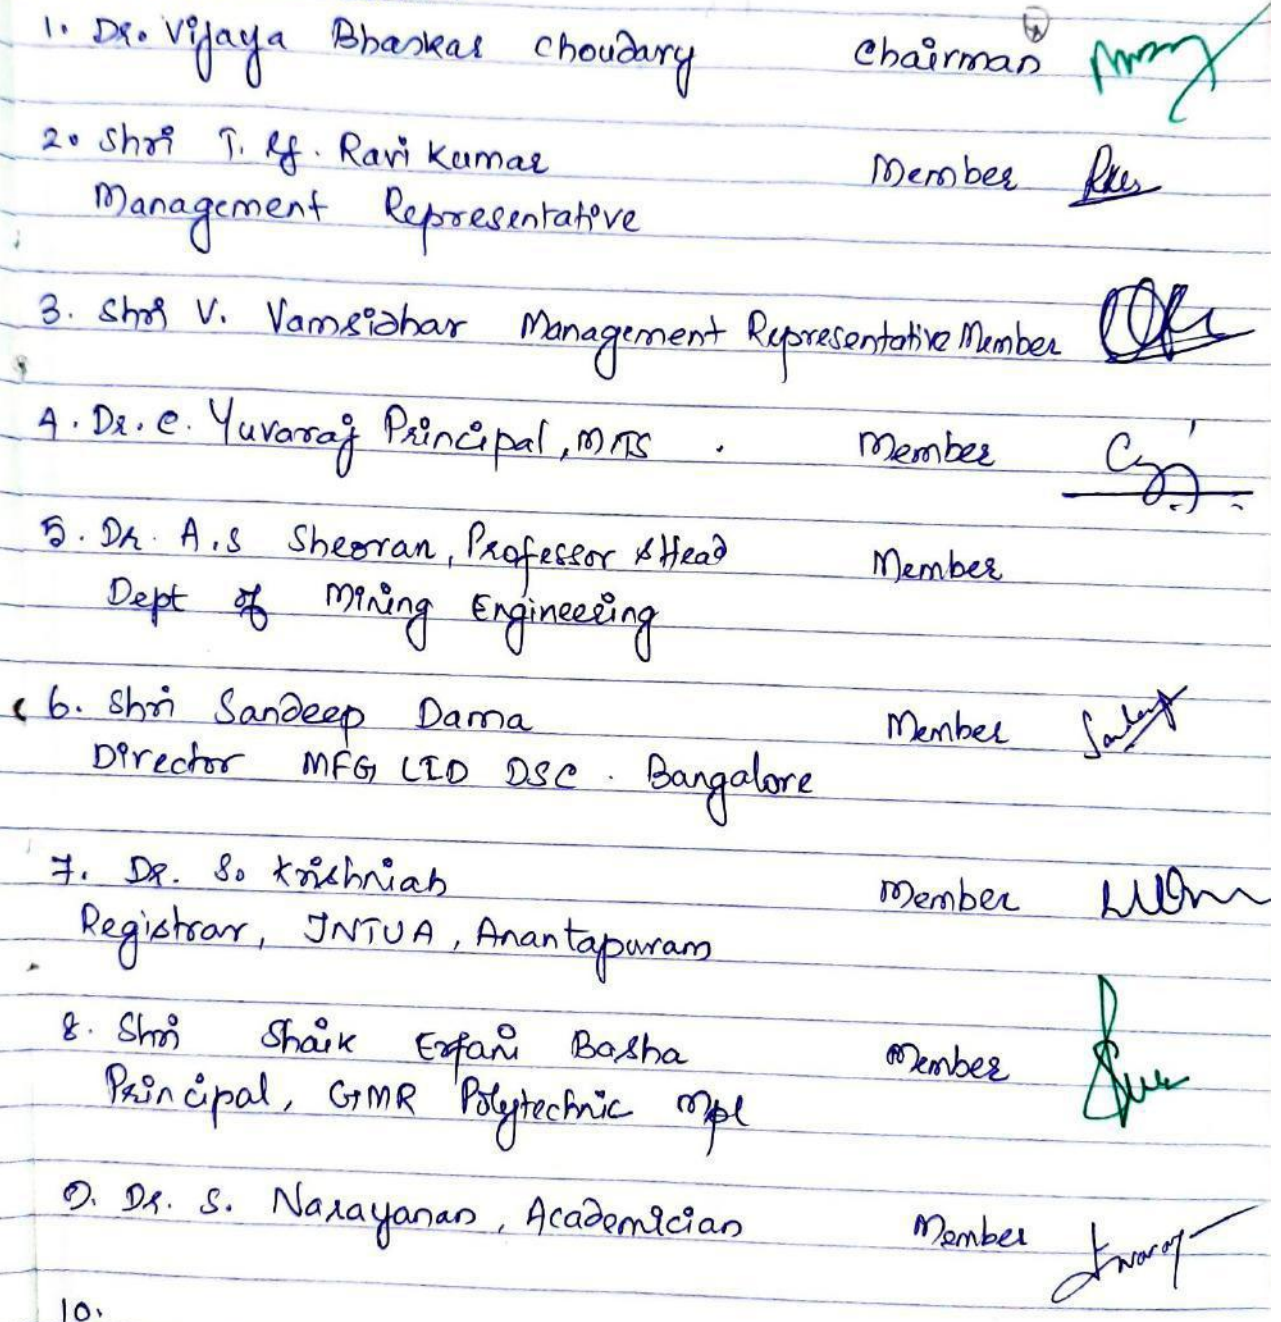 1. Dr. Vijaya Bhaskar Choudary Chairman
2. Shri T. Ravi Kumar Member
Management Representative
3. Shri V. Vamsidhar Management Representative Member
4. Dr. C. Yuvaraj Principal, MITS . Member
5. Dr. A.S Sheoran, Professor & Head Member
Dept of Mining Engineering
6. Shri Sandeep Dama Member
Director MFG LTD DSC . Bangalore
7. Dr. S. Krishniah Member
Registrar, JNTUA, Anantapuram
8. Shri Shaik Erfani Basha Member
Principal, GMR Polytechnic Mpl
9. Dr. S. Narayanan, Academician Member
10.